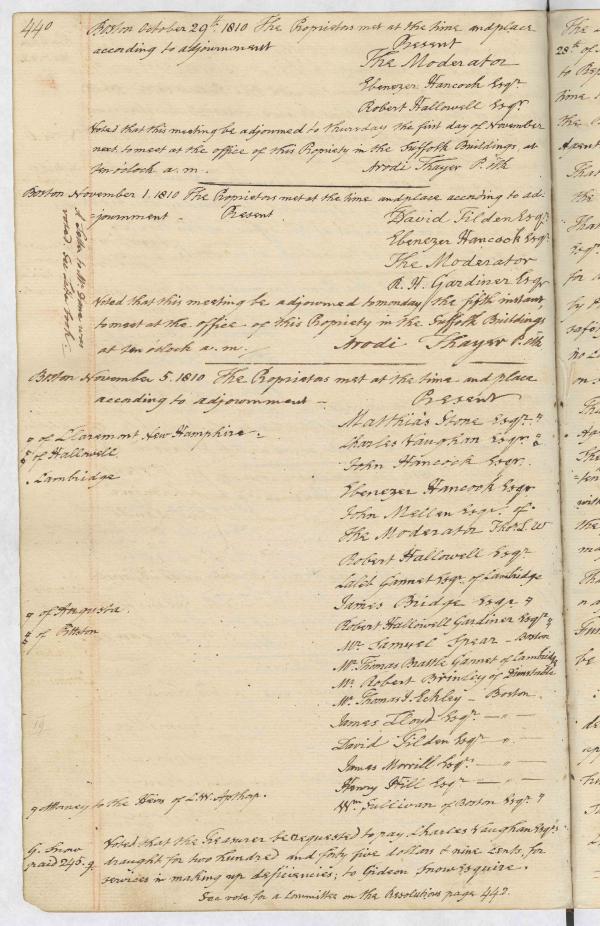 440
Boston October 29th. 1810 The Proprietors met at the time and place
according to adjournment Present
The Moderator
Ebenezer Hancock Esqr.
Robert Hallowell Esqr.
Voted that this meeting be adjourned to thursday the first day of November
next, to meet at the office of this Propriety in the Suffolk Buildings, at
ten o'clock a.m. Arodi Thayer P. Clk
Boston November 1. 1810 The Proprietors met at the time and place according to ad-
=journment - Present David Tilden Esqr.
Ebenezer Hancock Esqr.
The Moderator
R. H. Gardiner Esqr
A Letter to Mr. was
voted See Letter book.
Voted that this meeting be adjourned to monday the fifth instant
to meet at the office of this Propriety in the Suffolk Buildings
at ten o'clock a.m. Arodi Thayer P. Clk
Boston November 5. 1810 The Proprietors met at the time and place
according to adjournment - Present
Matthias Stone Esqr. "
" of Claremont New Hampshire -
Charles Vaughan Esqr. "
" of Hallowell
John Hancock Esqr.
. Cambridge
Ebenezer Hancock Esqr
John Mellen Esqr. of .
The Moderator Thos. L. W
Robert Hallowell Esqr
Caleb Gannet Esqr. of Cambridge
James Bridge Esqr "
" of Augusta.
Robert Hallowell Gardiner Esqr. "
" of Pittston
Mr. Samuel Spear - Boston
Mr. Thomas Brattle Gannet of Cambridge
Mr. Robert Brinley of Dunstable
Mr. Thomas J. Eckley - Boston.
James Lloyd Esqr. — " —
David Tilden Esqr — " —
James Morrill Esqr. — " —
Henry Hill Esqr — " —
" Attorney to the Heirs of C. W. Apthop.
Wm. Sullivan of Boston Esqr. "
G. Snow
paid 245. 9.
Voted that the Treasurer be requested to pay, Charles Vaughan Esqrs
draught for two hundred and forty five dollars & nine cents, for
services in making up deficiencies; to Gideon Snow Esquire.
See vote for a Committee on the Resolutions page 442.